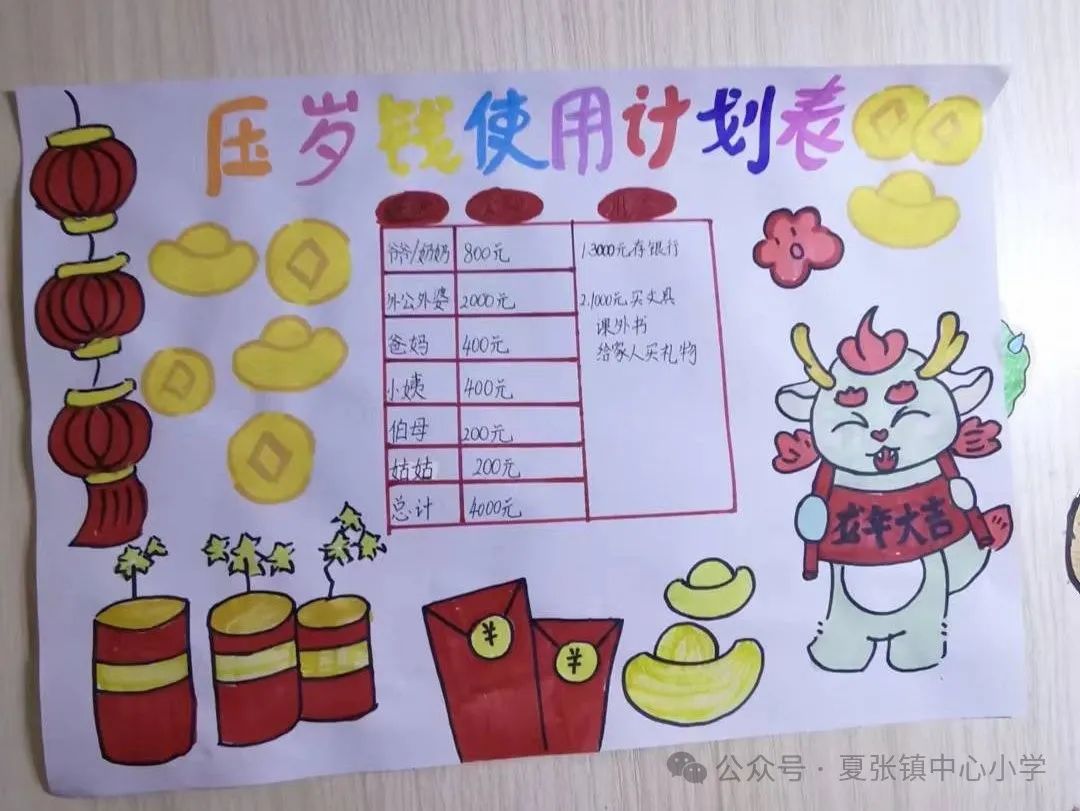 压岁钱使用计划表
爷爷/奶奶 800元
外公外婆 2000元
爸妈 400元
小姨 400元
伯母 200元
姑姑 200元
总计 4000元
1.3000元存银行
2.1000元买文具
课外书
给家人买礼物
龙年大吉
¥
¥
公众号·夏张镇中心小学